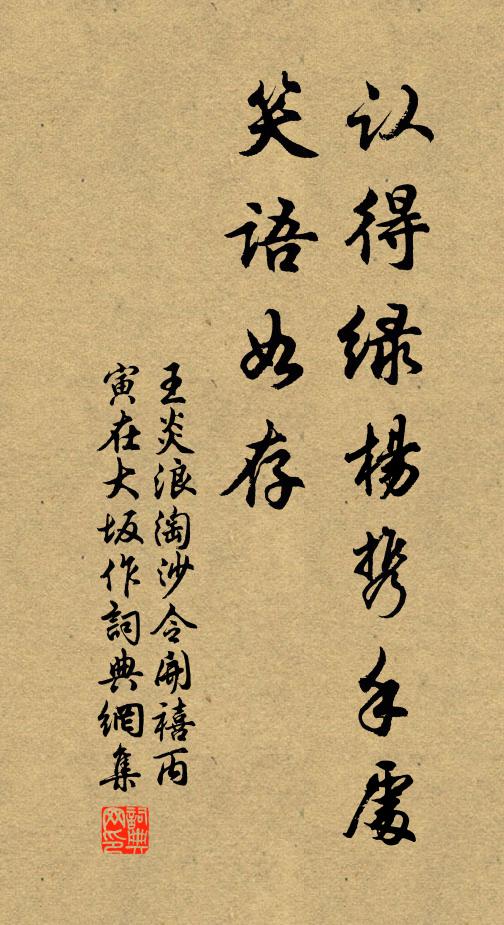 认得绿杨携手处
笑语如存
王炎浪淘沙令開禧丙
寅在大坂作詞典網集
詞典网印